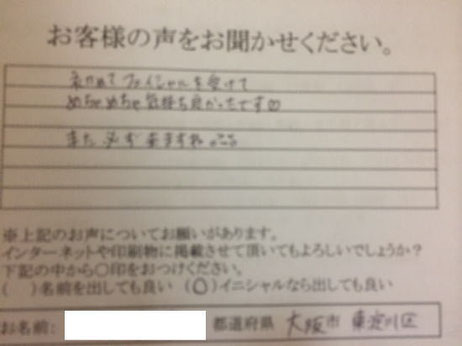 お客様の声をお聞かせください。
初めてフェイシャルを受けて
めちゃめちゃ気持ち良かったです♡
また必ず来ますね
※上記のお声についてお願いがあります。
インターネットや印刷物に掲載させて頂いてもよろしいでしょうか?
下記の中から○印をおつけください。
( )名前を出しても良い (○)イニシャルなら出しても良い
お名前: 都道府県 大阪市 東淀川区